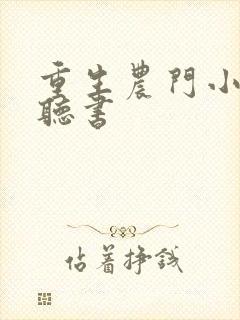 重生農門小
聽書
佔着掙錢